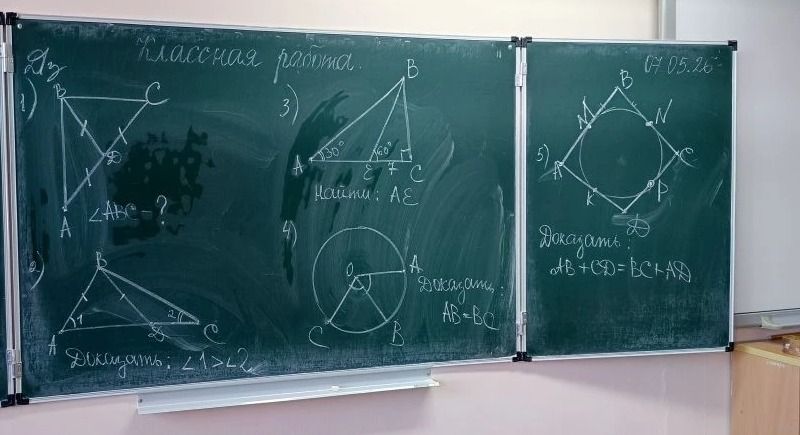 Классная работа.
07.05.26
Дз
1)
B
C
D
A
∠ABC - ?
2)
B
1
2
A
D
C
Доказать: ∠1>∠2
3)
B
30°
60°
7
A
E
C
Найти: AE
4)
O
A
C
B
Доказать:
AB=BC
5)
B
M
N
A
C
K
P
D
Доказать:
AB+CD=BC+AD